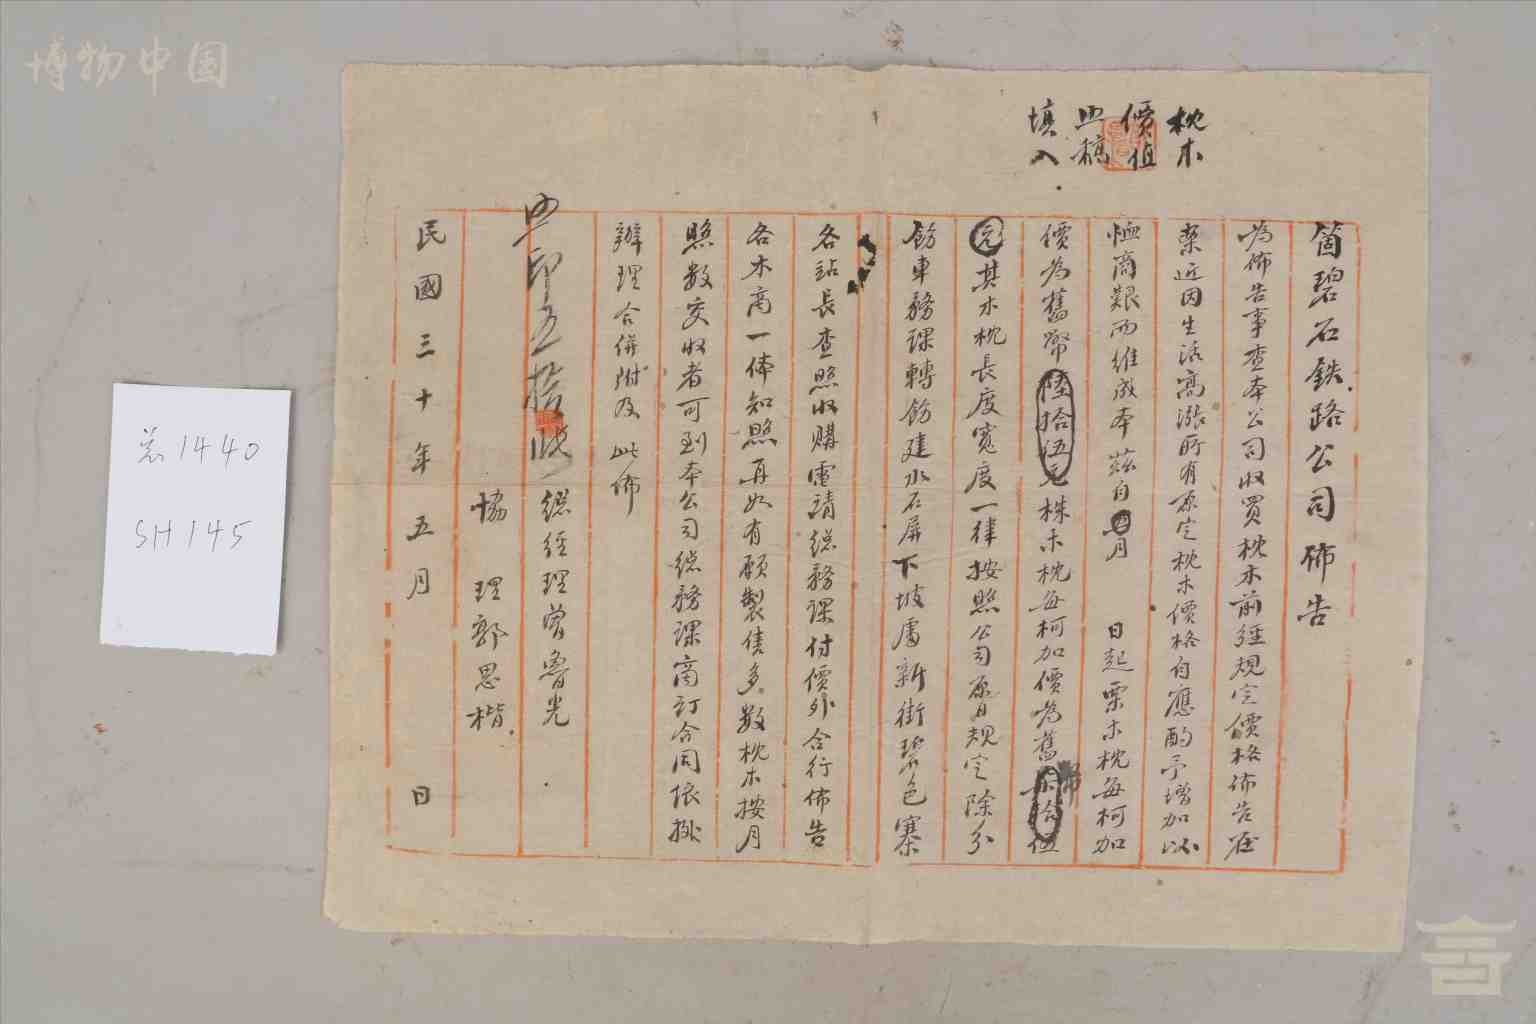 博物中国
枕木
價值
照稿
填入
箇碧石鉄路公司佈告
為佈告事查本公司收買枕木前經規定價格佈告在
案近因生活高漲所有原定枕木價格自應酌予增加以
恤商艱而維成本茲自 月 日起栗木枕每柯加
價為舊幣陸拾伍元株木枕每柯加價為舊幣 拾伍
元其木枕長度寬度一律按照公司原日規定除分
飭車務課轉飭建水石屏下坡處新街碧色寨
各站長查照收購電請總務課付價外合行佈告
各木商一体知照再如有願製售多數枕木按月
照数交收者可到本公司總務課商訂合同依據
辦理合併附及此佈
照印五拾張
總經理曾魯光
協理郭思楷
民國三十年五月 日
总1440
SH145